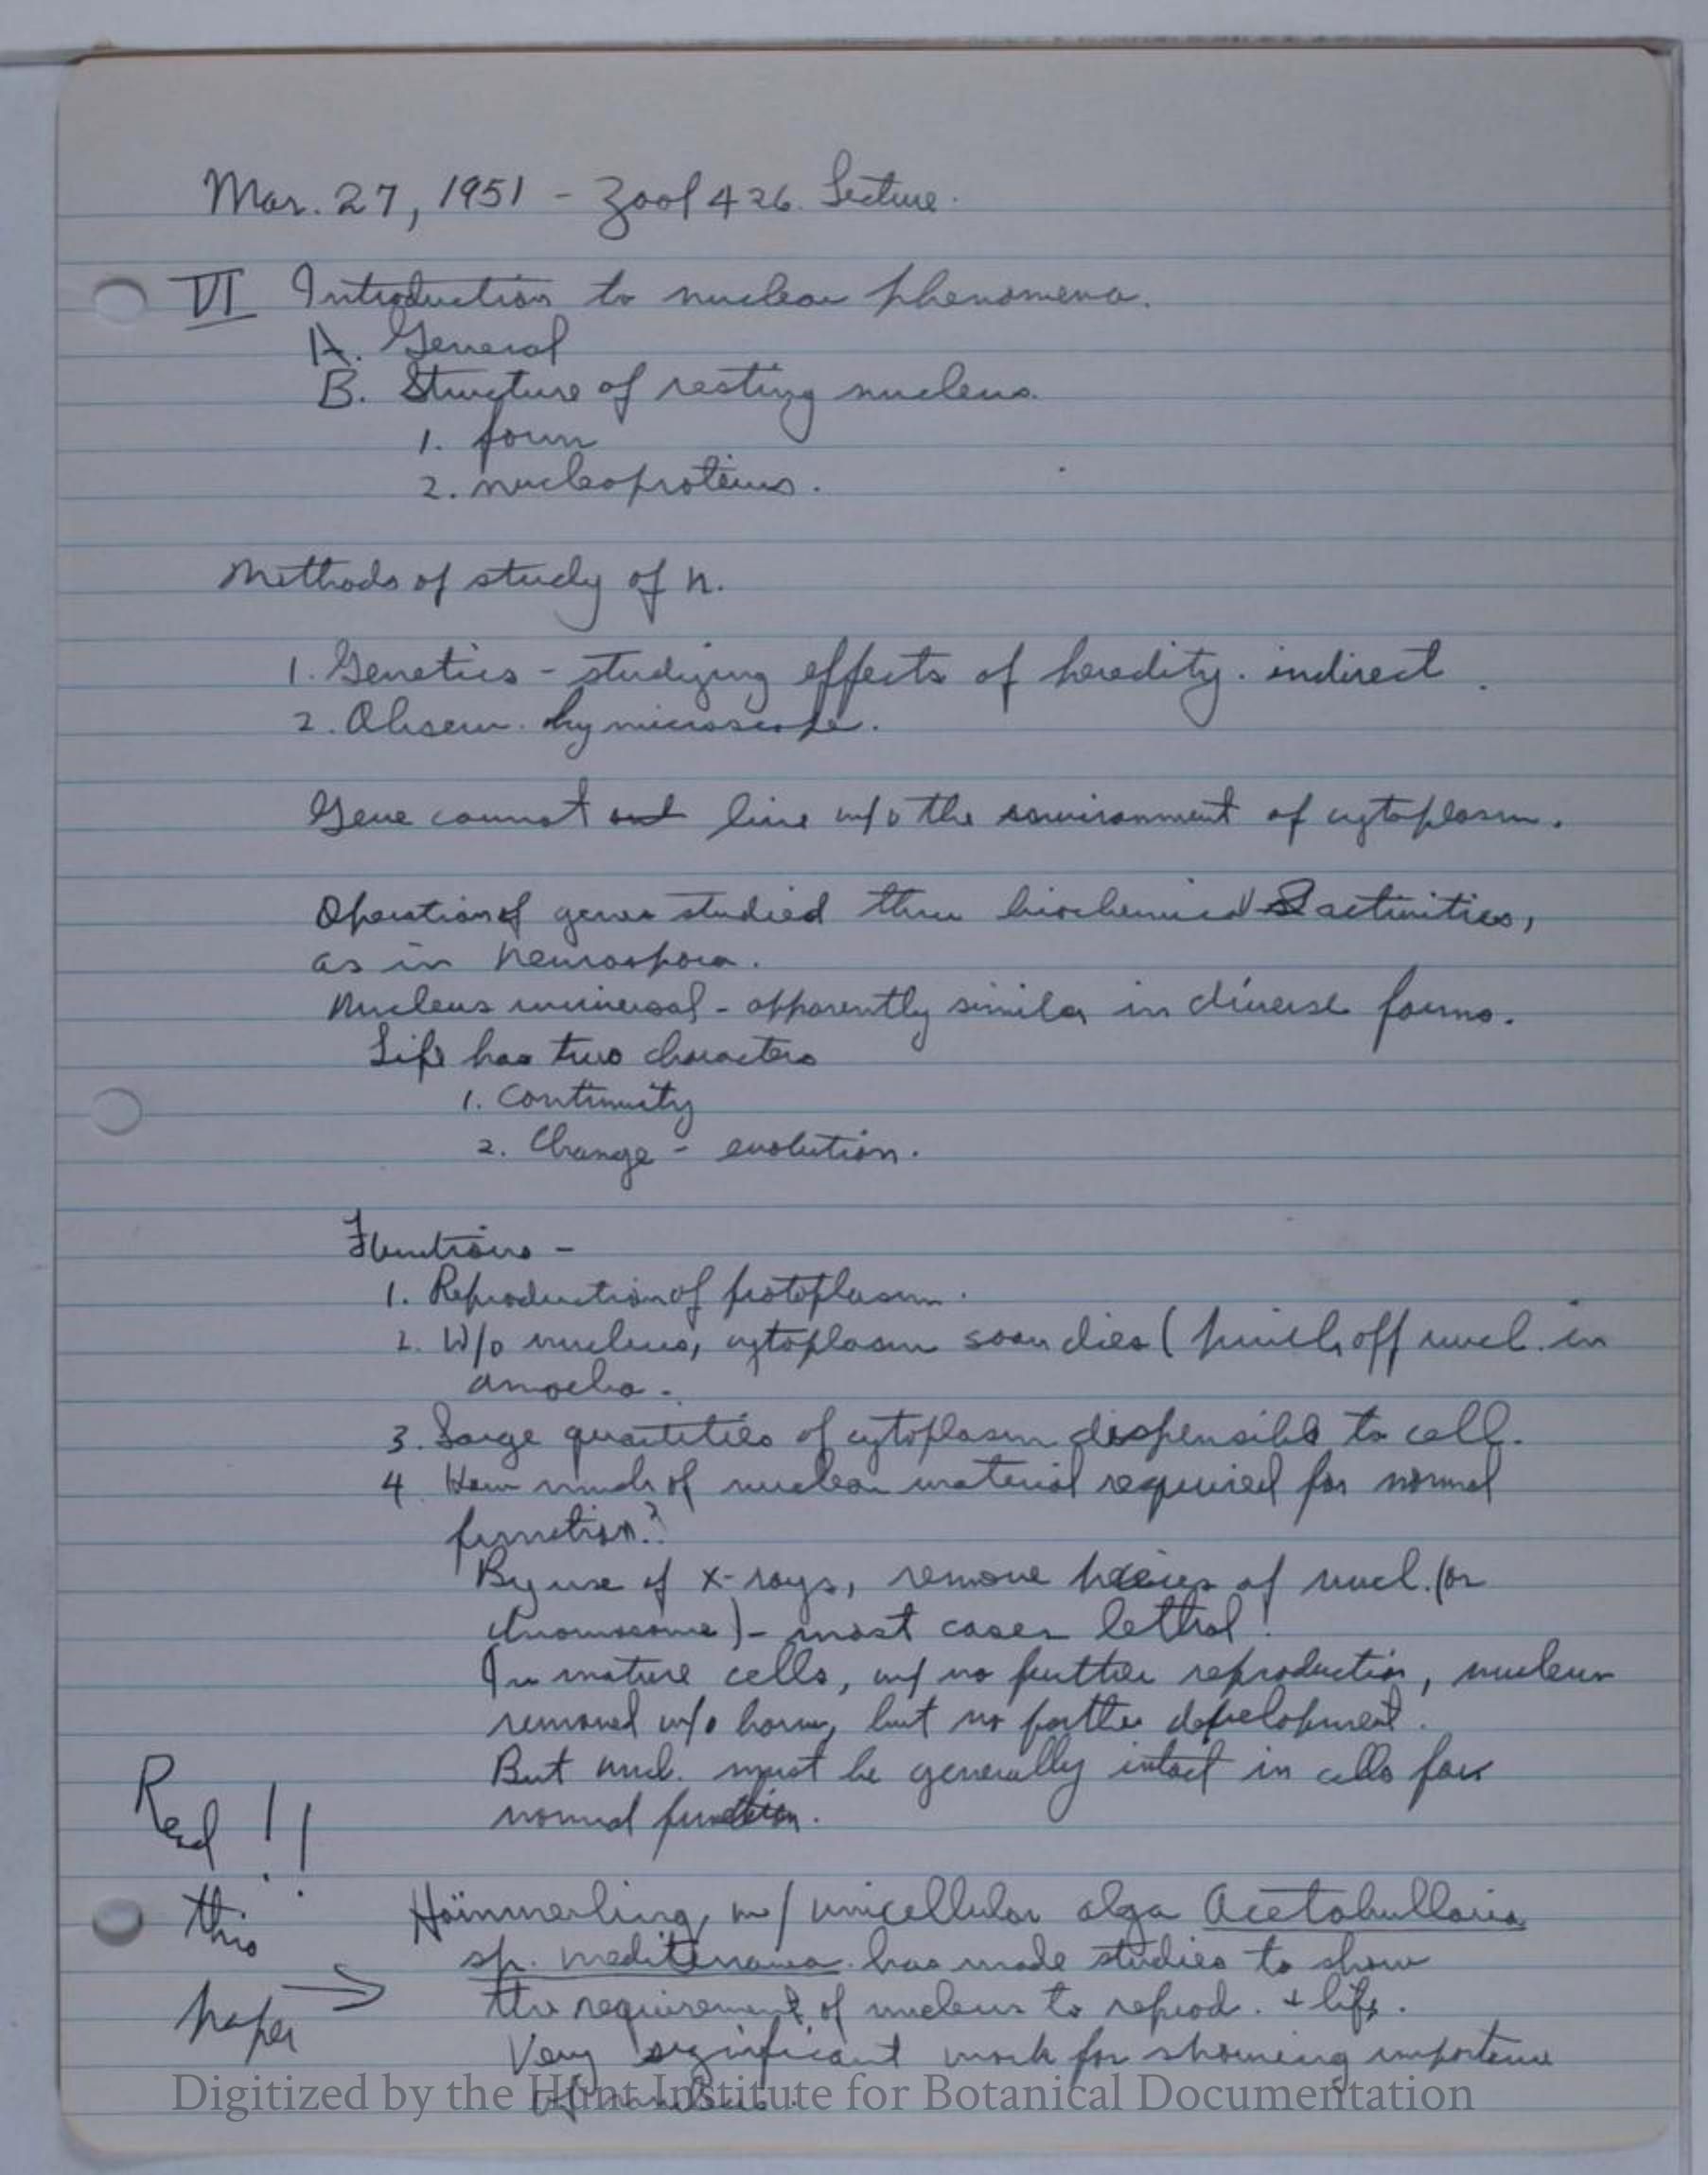 Mar. 27, 1951 - Zool 426. Lecture.
VI Introduction to nuclear phenomena.
A. General
B. Structure of resting nucleus.
1. form
2. nucleoproteins.
Methods of study of n.
1. Genetics - studying effects of heredity. indirect.
2. Observ. by microscope.
Gene cannot live w/o the environment of cytoplasm.
Operation of genes studied thru biochemical activities,
as in neurospora.
Nucleus universal - apparently similar in diverse forms.
Life has two characters
1. Continuity
2. Change - evolution.
Functions -
1. Reproduction of protoplasm.
2. W/o nucleus, cytoplasm soon dies (pinch off nucl. in
amoeba.
3. Large quantities of cytoplasm dispensible to cell.
4. How much of nuclear material required for normal
function?
By use of x-rays, remove pieces of nucl. (or
chromosome) - most cases lethal!
In mature cells, w/ no further reproduction, nucleus
removed w/o harm, but no further development.
But nucl. must be generally intact in cells for
normal function.
Read!!
this
paper →
Hämmerling, w/ unicellular alga Acetabullaria
sp. mediterranea. has made studies to show
the requirement of nucleus to reprod. + life.
Very significant work for showing importance
of nucleus.
Digitized by the Hunt Institute for Botanical Documentation